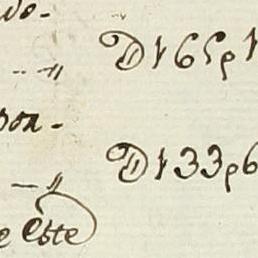 do-
D165p1
-"
son-
D133p6
-"
e este